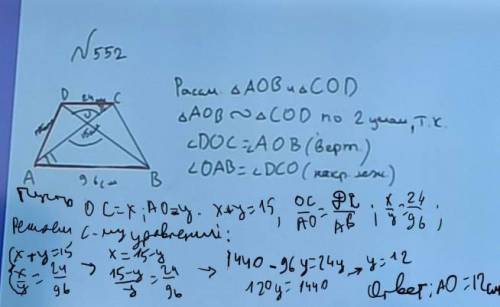 №552
D 24см C
O
15см
A 96см B
Рассм. △AOB и △COD
△AOB ~ △COD по 2 углам, т.к.
∠DOC = ∠AOB (верт.)
∠OAB = ∠DCO (накр. леж)
Пусть OC = x; AO = y. x+y = 15, OC/AO = DC/AB; x/y = 24/96;
Решаем с-му уравнений:
{x+y=15 → x = 15-y → 1440-96y=24y → y=12
{x/y = 24/96 15-y/y = 24/96 120y = 1440
Ответ: AO = 12см